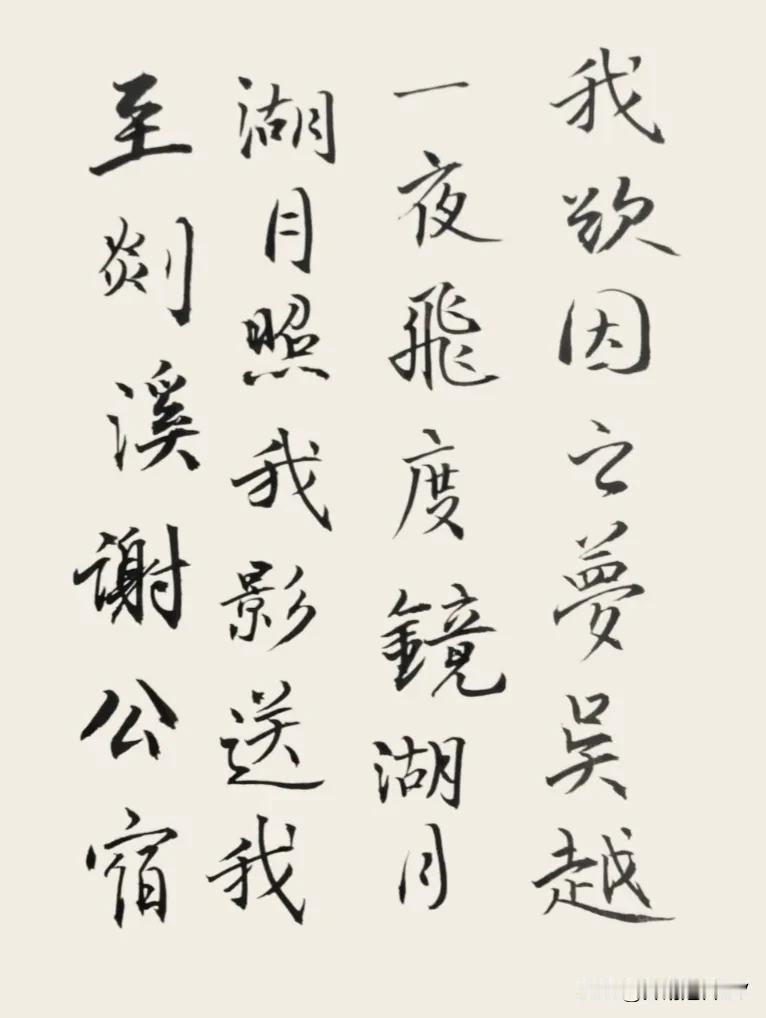 我欲因之夢吳越
一夜飛度鏡湖月
湖月照我影送我
至剡溪謝公宿